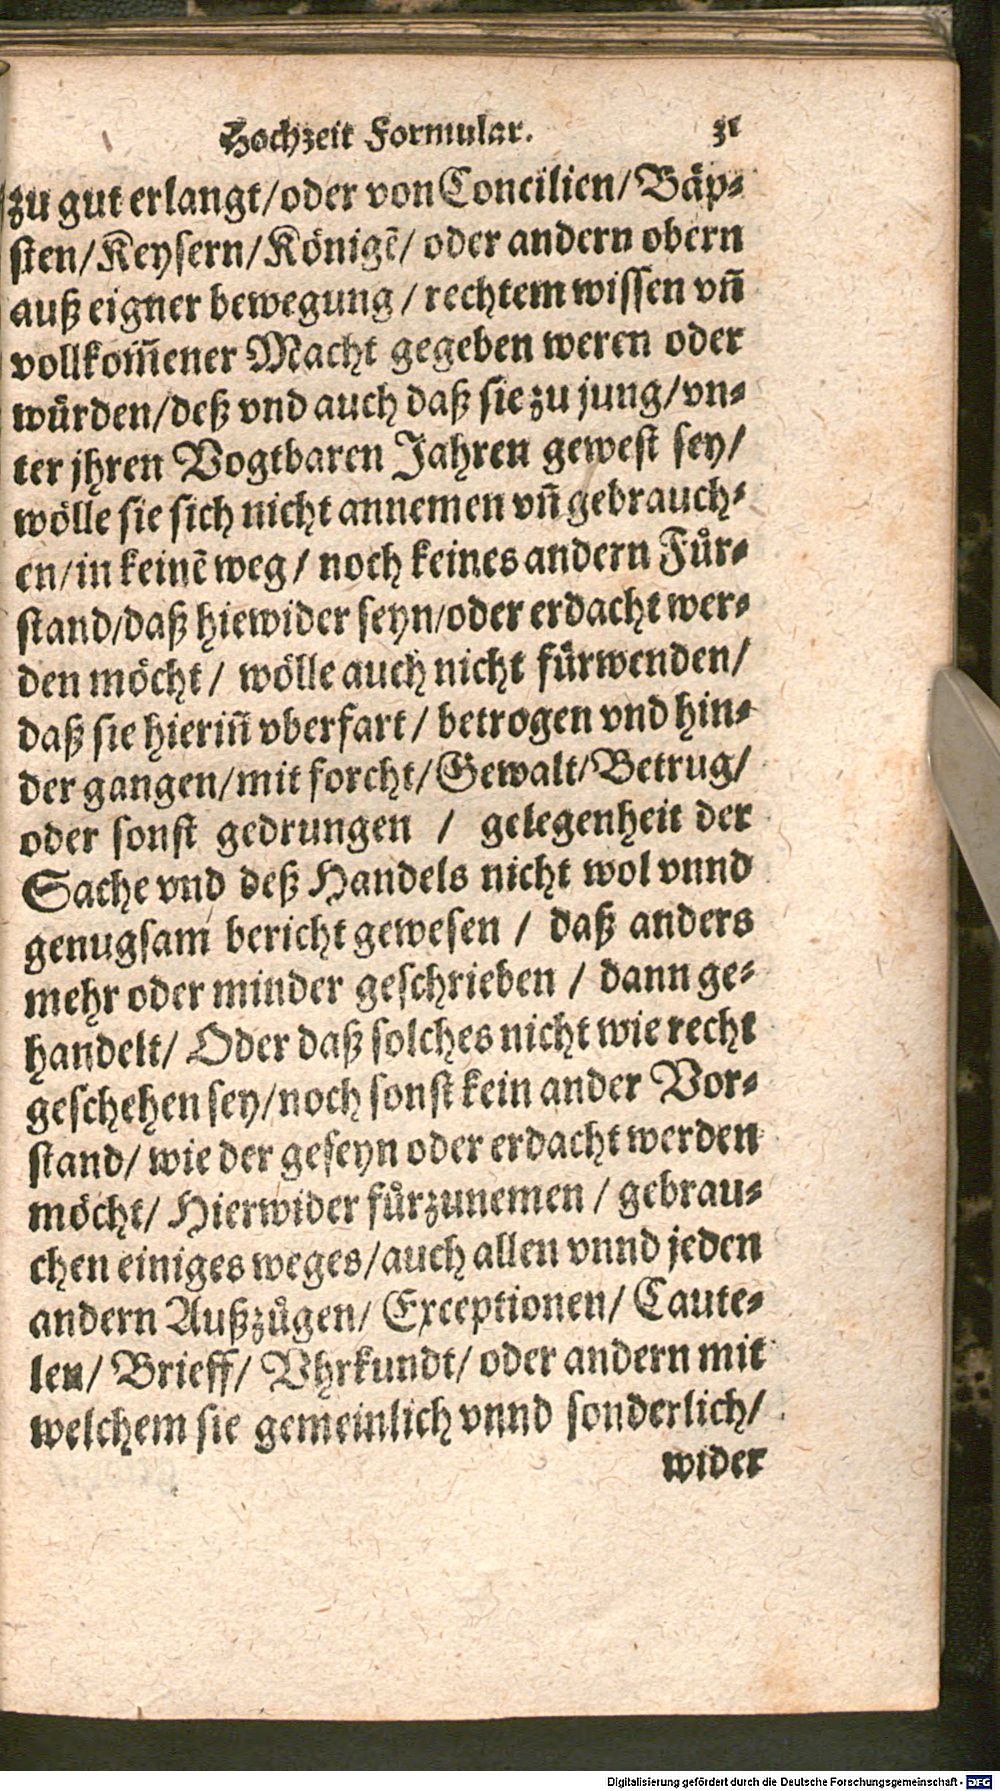 Hochzeit Formular. 31
zu gut erlangt/oder von Concilien/Bäp⸗
sten/Keysern/Königẽ/ oder andern obern
auß eigner bewegung / rechtem wissen vñ
vollkom̃ener Macht gegeben weren oder
würden/deß vnd auch daß sie zu jung/vn⸗
ter jhren Vogtbaren Jahren gewest sey/
wölle sie sich nicht annemen vñ gebrauch⸗
en/in keinẽ weg / noch keines andern Fůr⸗
stand/daß hiewider seyn/oder erdacht wer⸗
den möcht / wölle auch nicht fürwenden/
daß sie hieriñ vberfart / betrogen vnd hin⸗
der gangen/mit forcht/Gewalt/Betrug/
oder sonst gedrungen / gelegenheit der
Sache vnd deß Handels nicht wol vnnd
genugsam bericht gewesen / daß anders
mehr oder minder geschrieben / dann ge⸗
handelt/ Oder daß solches nicht wie recht
geschehen sey/noch sonst kein ander Vor⸗
stand/ wie der geseyn oder erdacht werden
möcht/ Hierwider fůrzunemen / gebrau⸗
chen einiges weges/auch allen vnnd jeden
andern Außzůgen/ Exceptionen/ Caute⸗
len/ Brieff/ Vhrkundt/ oder andern mit
welchem sie gemeinlich vnnd sonderlich/
wider
Digitalisierung gefördert durch die Deutsche Forschungsgemeinschaft - DFG